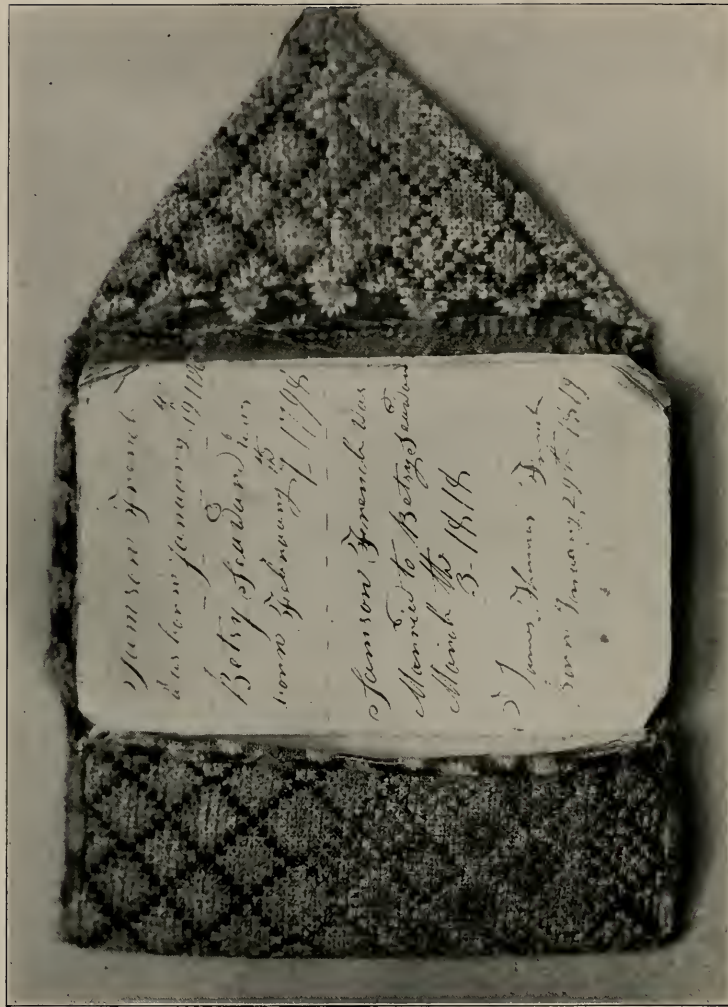 Samson French
was born January 19th
Betsy Seavars was
born February 7 1798
Samson French was
Married to Betsy Seavars
March the
3-1818
James Thomas French
born January 29th 1819